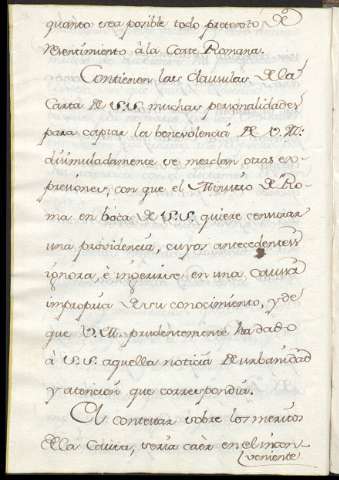 quanto sea posible todo pretexto de
resentimiento à la Corte Romana.
Contienen las clausulas de la
Carta de S.S. muchas personalidades
para captar la benevolencia de V.M:
disimuladamente se mezclan otras ex-
presiones, con que el Ministro de Ro-
ma en boca de S.S. quiere censurar
una providencia, cuyos antecedentes
ignora, è ingerirse en una Causa
impropia de su conocimiento, y de
que V.M. prudentemente ha dado
à S.S. aquella noticia de urbanidad
y atencion que correspondia.
El contestar sobre los meritos
de la Causa, seria caèr en el incon-
veniente